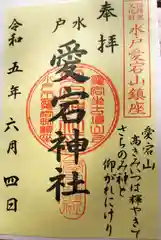 水戸愛宕山鎮座
奉拝
水戸
愛宕神社
令和五年六月四日
愛宕山
高きみいつは輝やきて
さちのみ神と
仰がれにけり